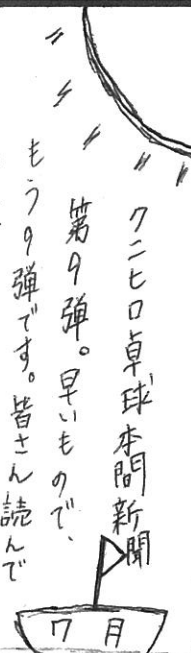 クニヒロ卓球本間新聞
第9弾。早いもので、
もう9弾です。皆さん読んで
7月